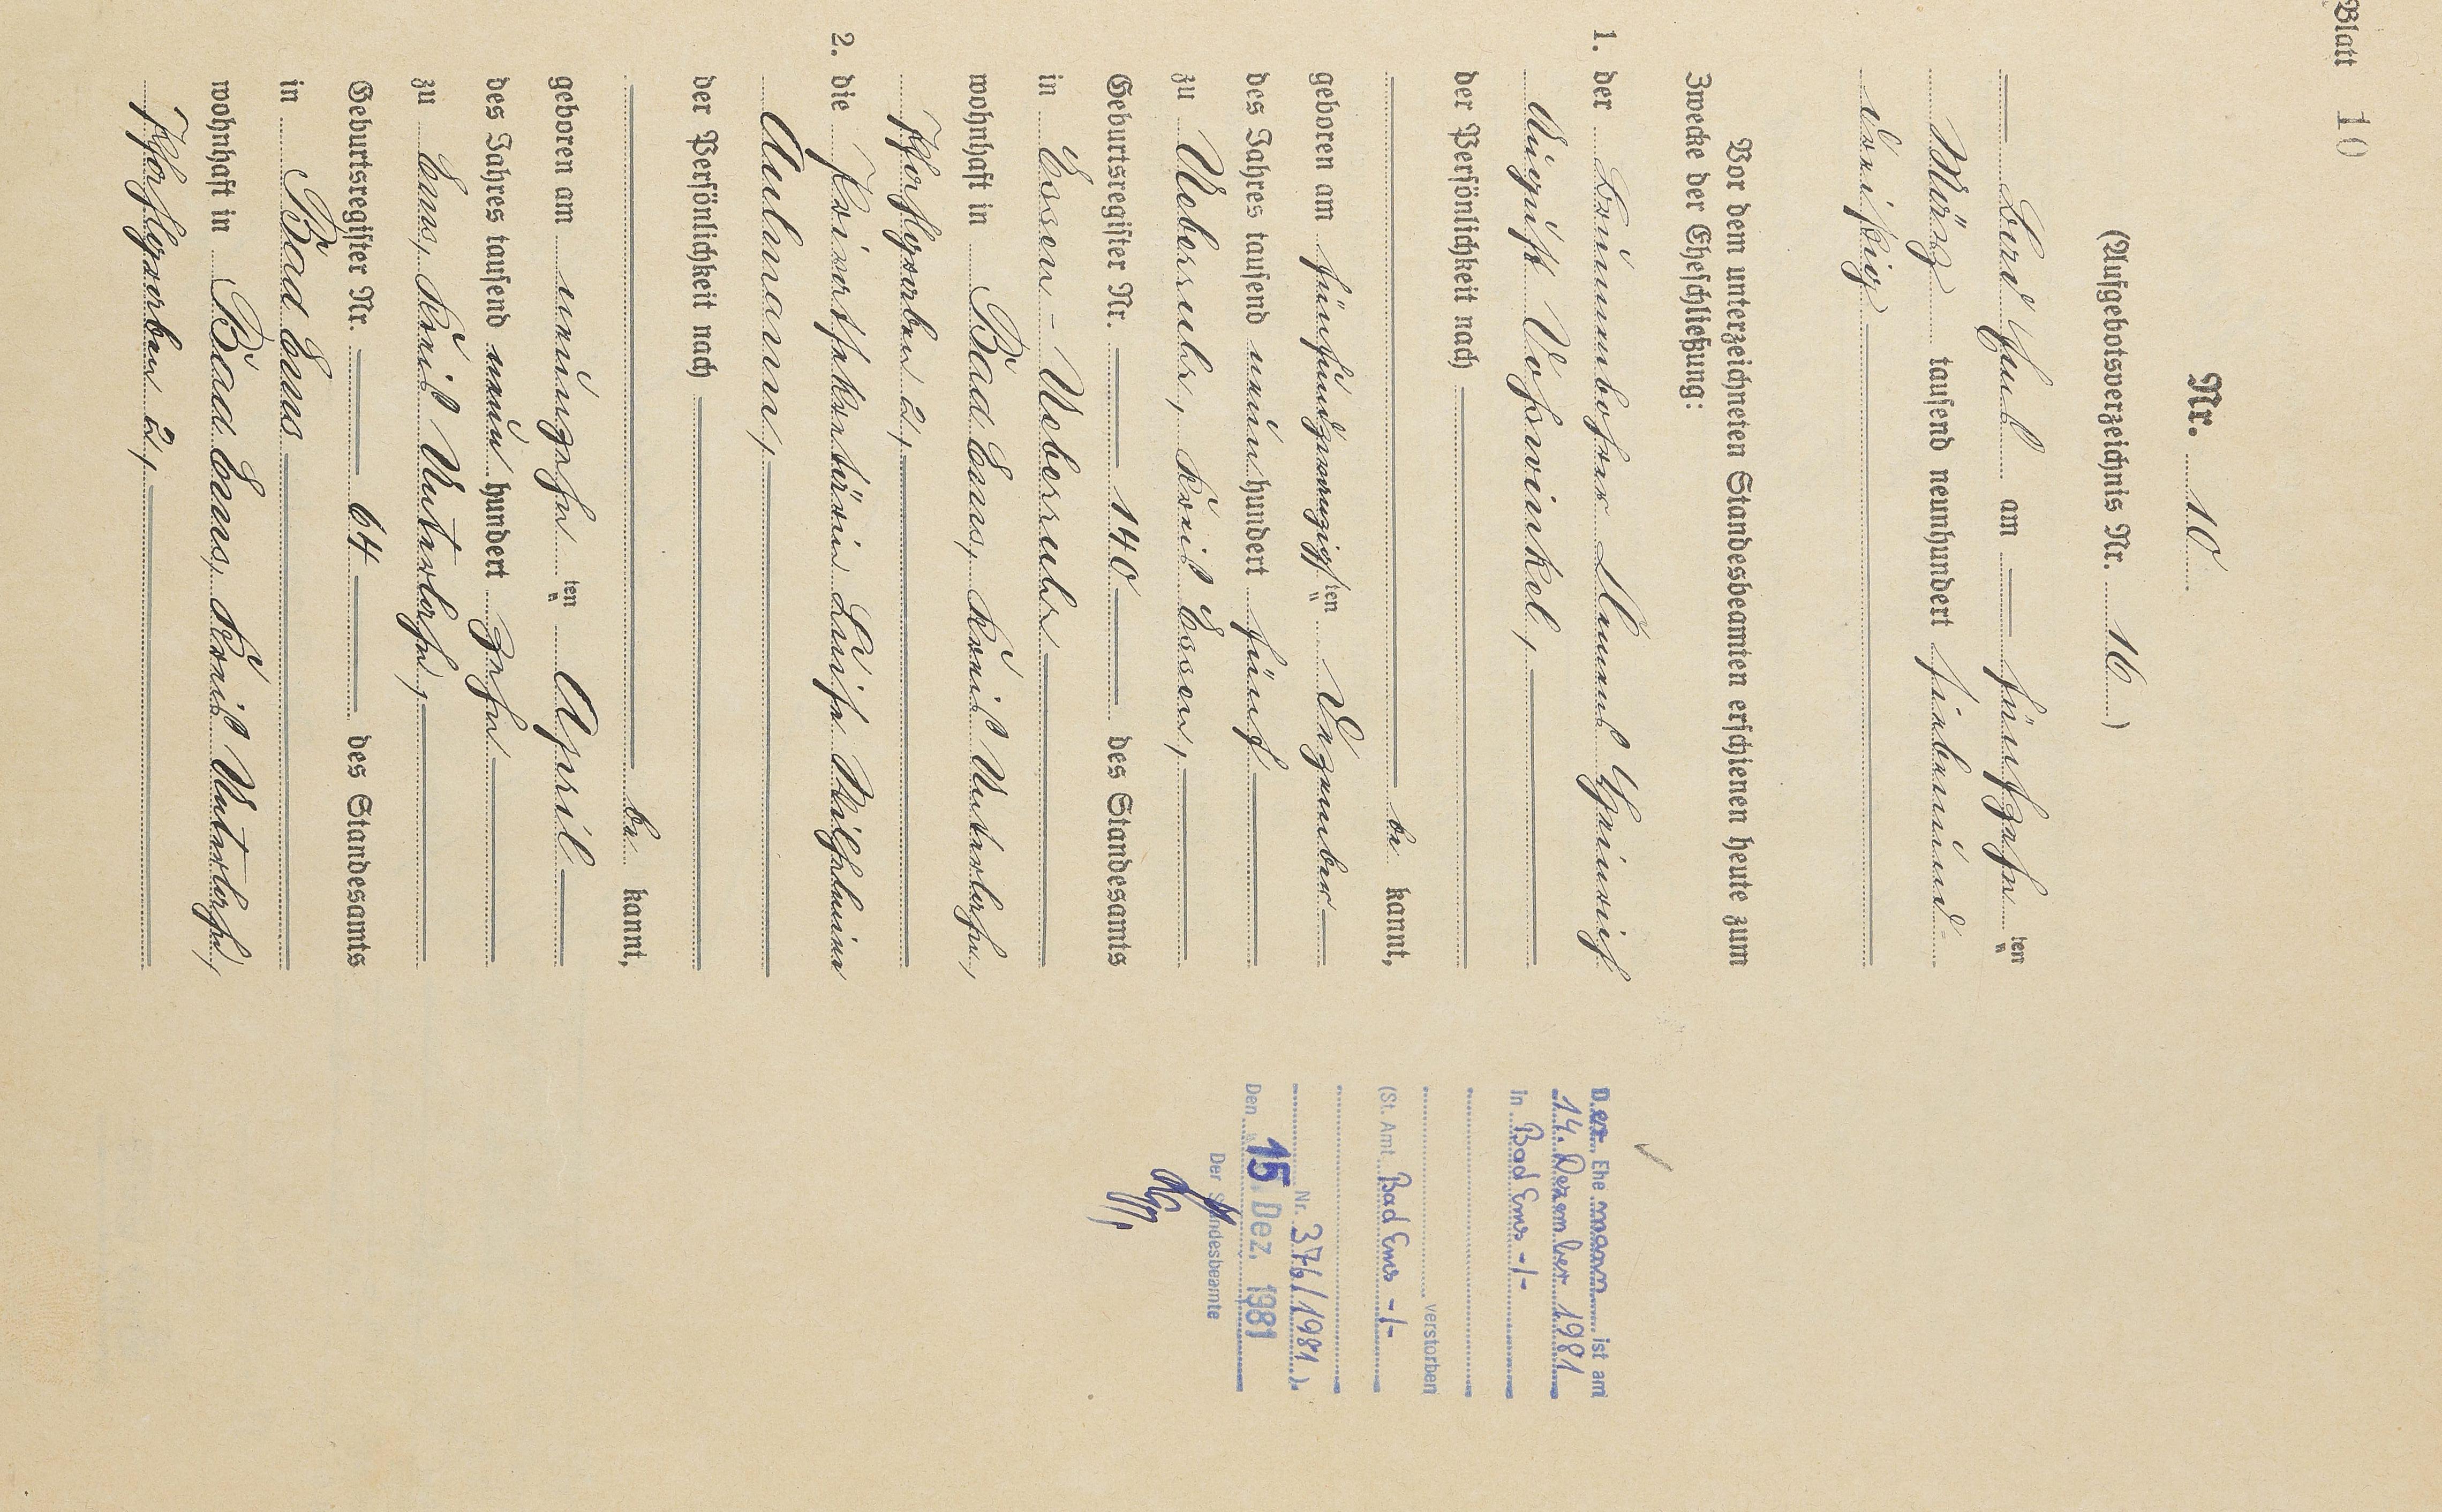 Blatt 10
Nr. 10
(Aufgebotsverzeichnis Nr. 16)
Bad Ems am fünfzehn ten
März tausend neunhundert siebenund-
dreißig
Vor dem unterzeichneten Standesbeamten erschienen heute zum
Zwecke der Eheschließung:
1. der
August Voßwinkel,
der Persönlichkeit nach
be kannt,
geboren am fünfundzwanzigsten Dezember
des Jahres tausend neunhundert fünf
zu Ueberruhr, Kreis Essen,
Geburtsregister Nr. 140 des Standesamts
in Essen-Ueberruhr
wohnhaft in Bad Ems, Kreis Unterlahn,
2,
2. die Luise Wilhelmine
Aulmann,
der Persönlichkeit nach
be kannt,
geboren am neunzehn ten April
des Jahres tausend neun hundert zehn
zu Ems, Kreis Unterlahn,
Geburtsregister Nr. 64 des Standesamts
in Bad Ems
wohnhaft in Bad Ems, Kreis Unterlahn,
2,
Der Ehe mann ist am
14. Dezember 1981
in Bad Ems -/-
verstorben
(St. Amt Bad Ems -/-
Nr. 376/1981).
Den 15. Dez. 1981
Der Standesbeamte